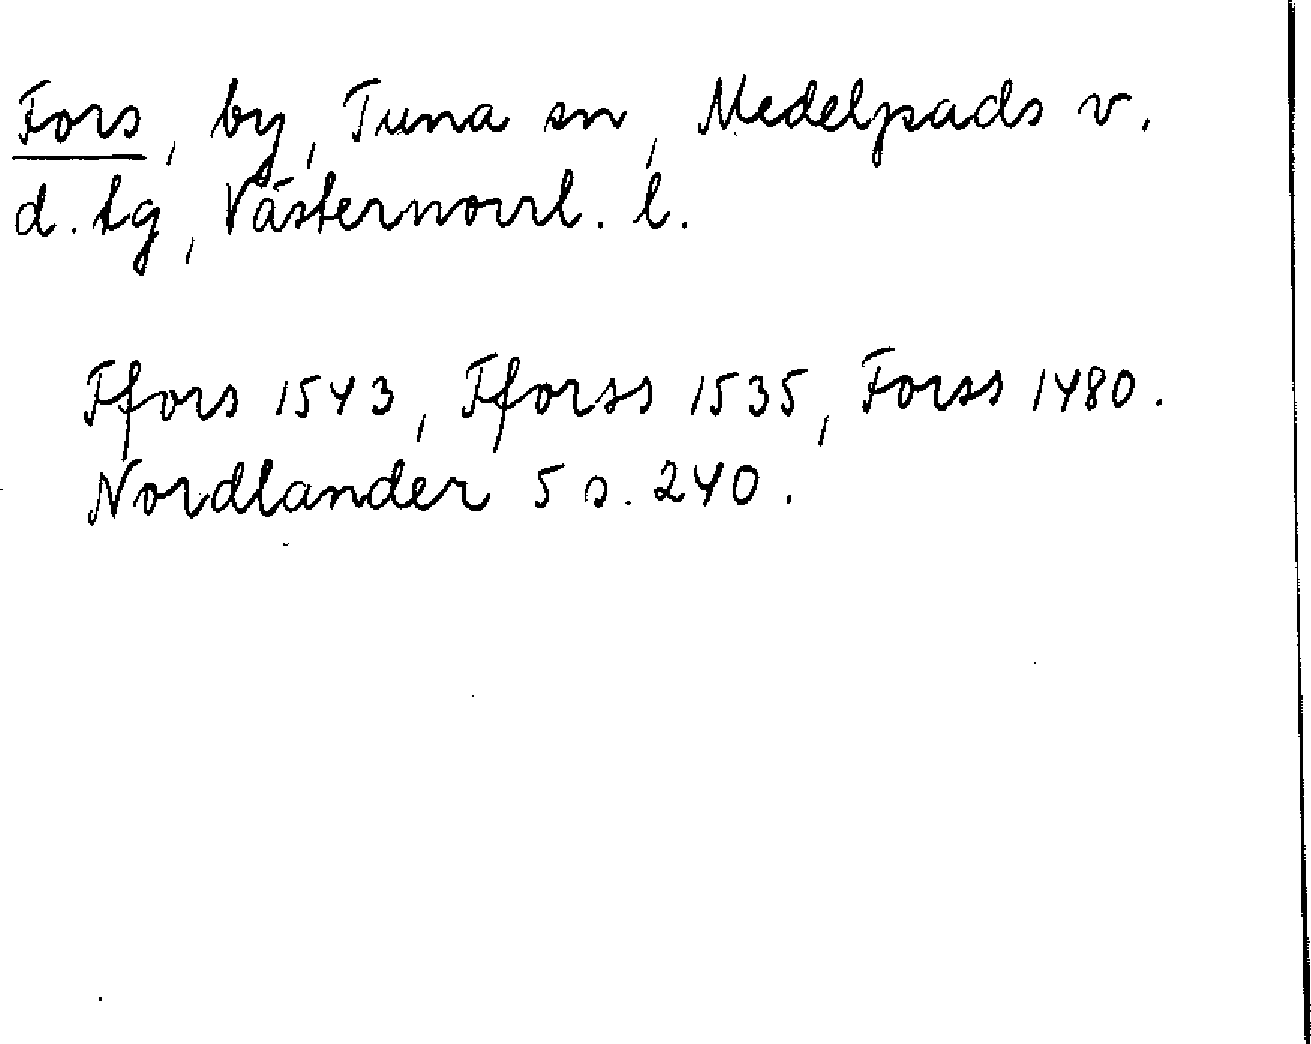 Fors, by, Tuna sn, Medelpads v.
d. tg, Västernorrl. l.
Ffors 1543, Fforss 1535, Forss 1480.
Nordlander 5 s. 240.